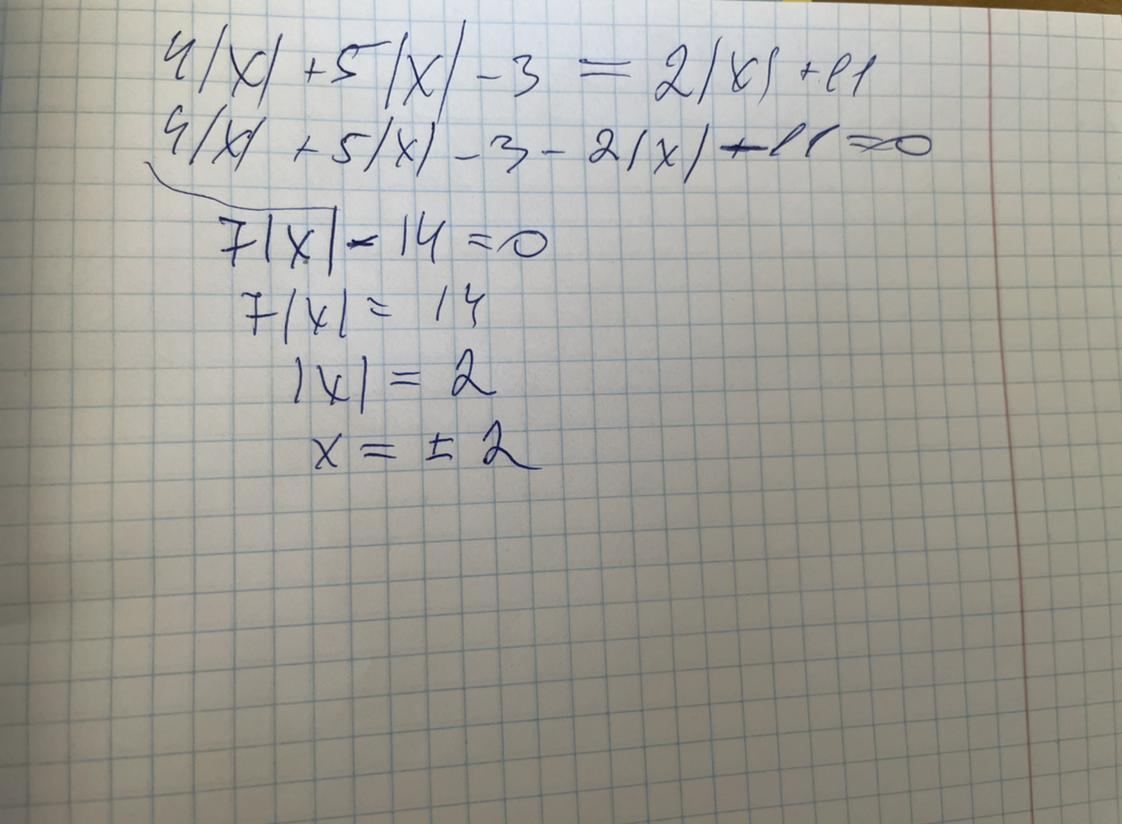 4|x| + 5|x| - 3 = 2|x| + 11
4|x| + 5|x| - 3 - 2|x| - 11 = 0
7|x| - 14 = 0
7|x| = 14
|x| = 2
x = ± 2